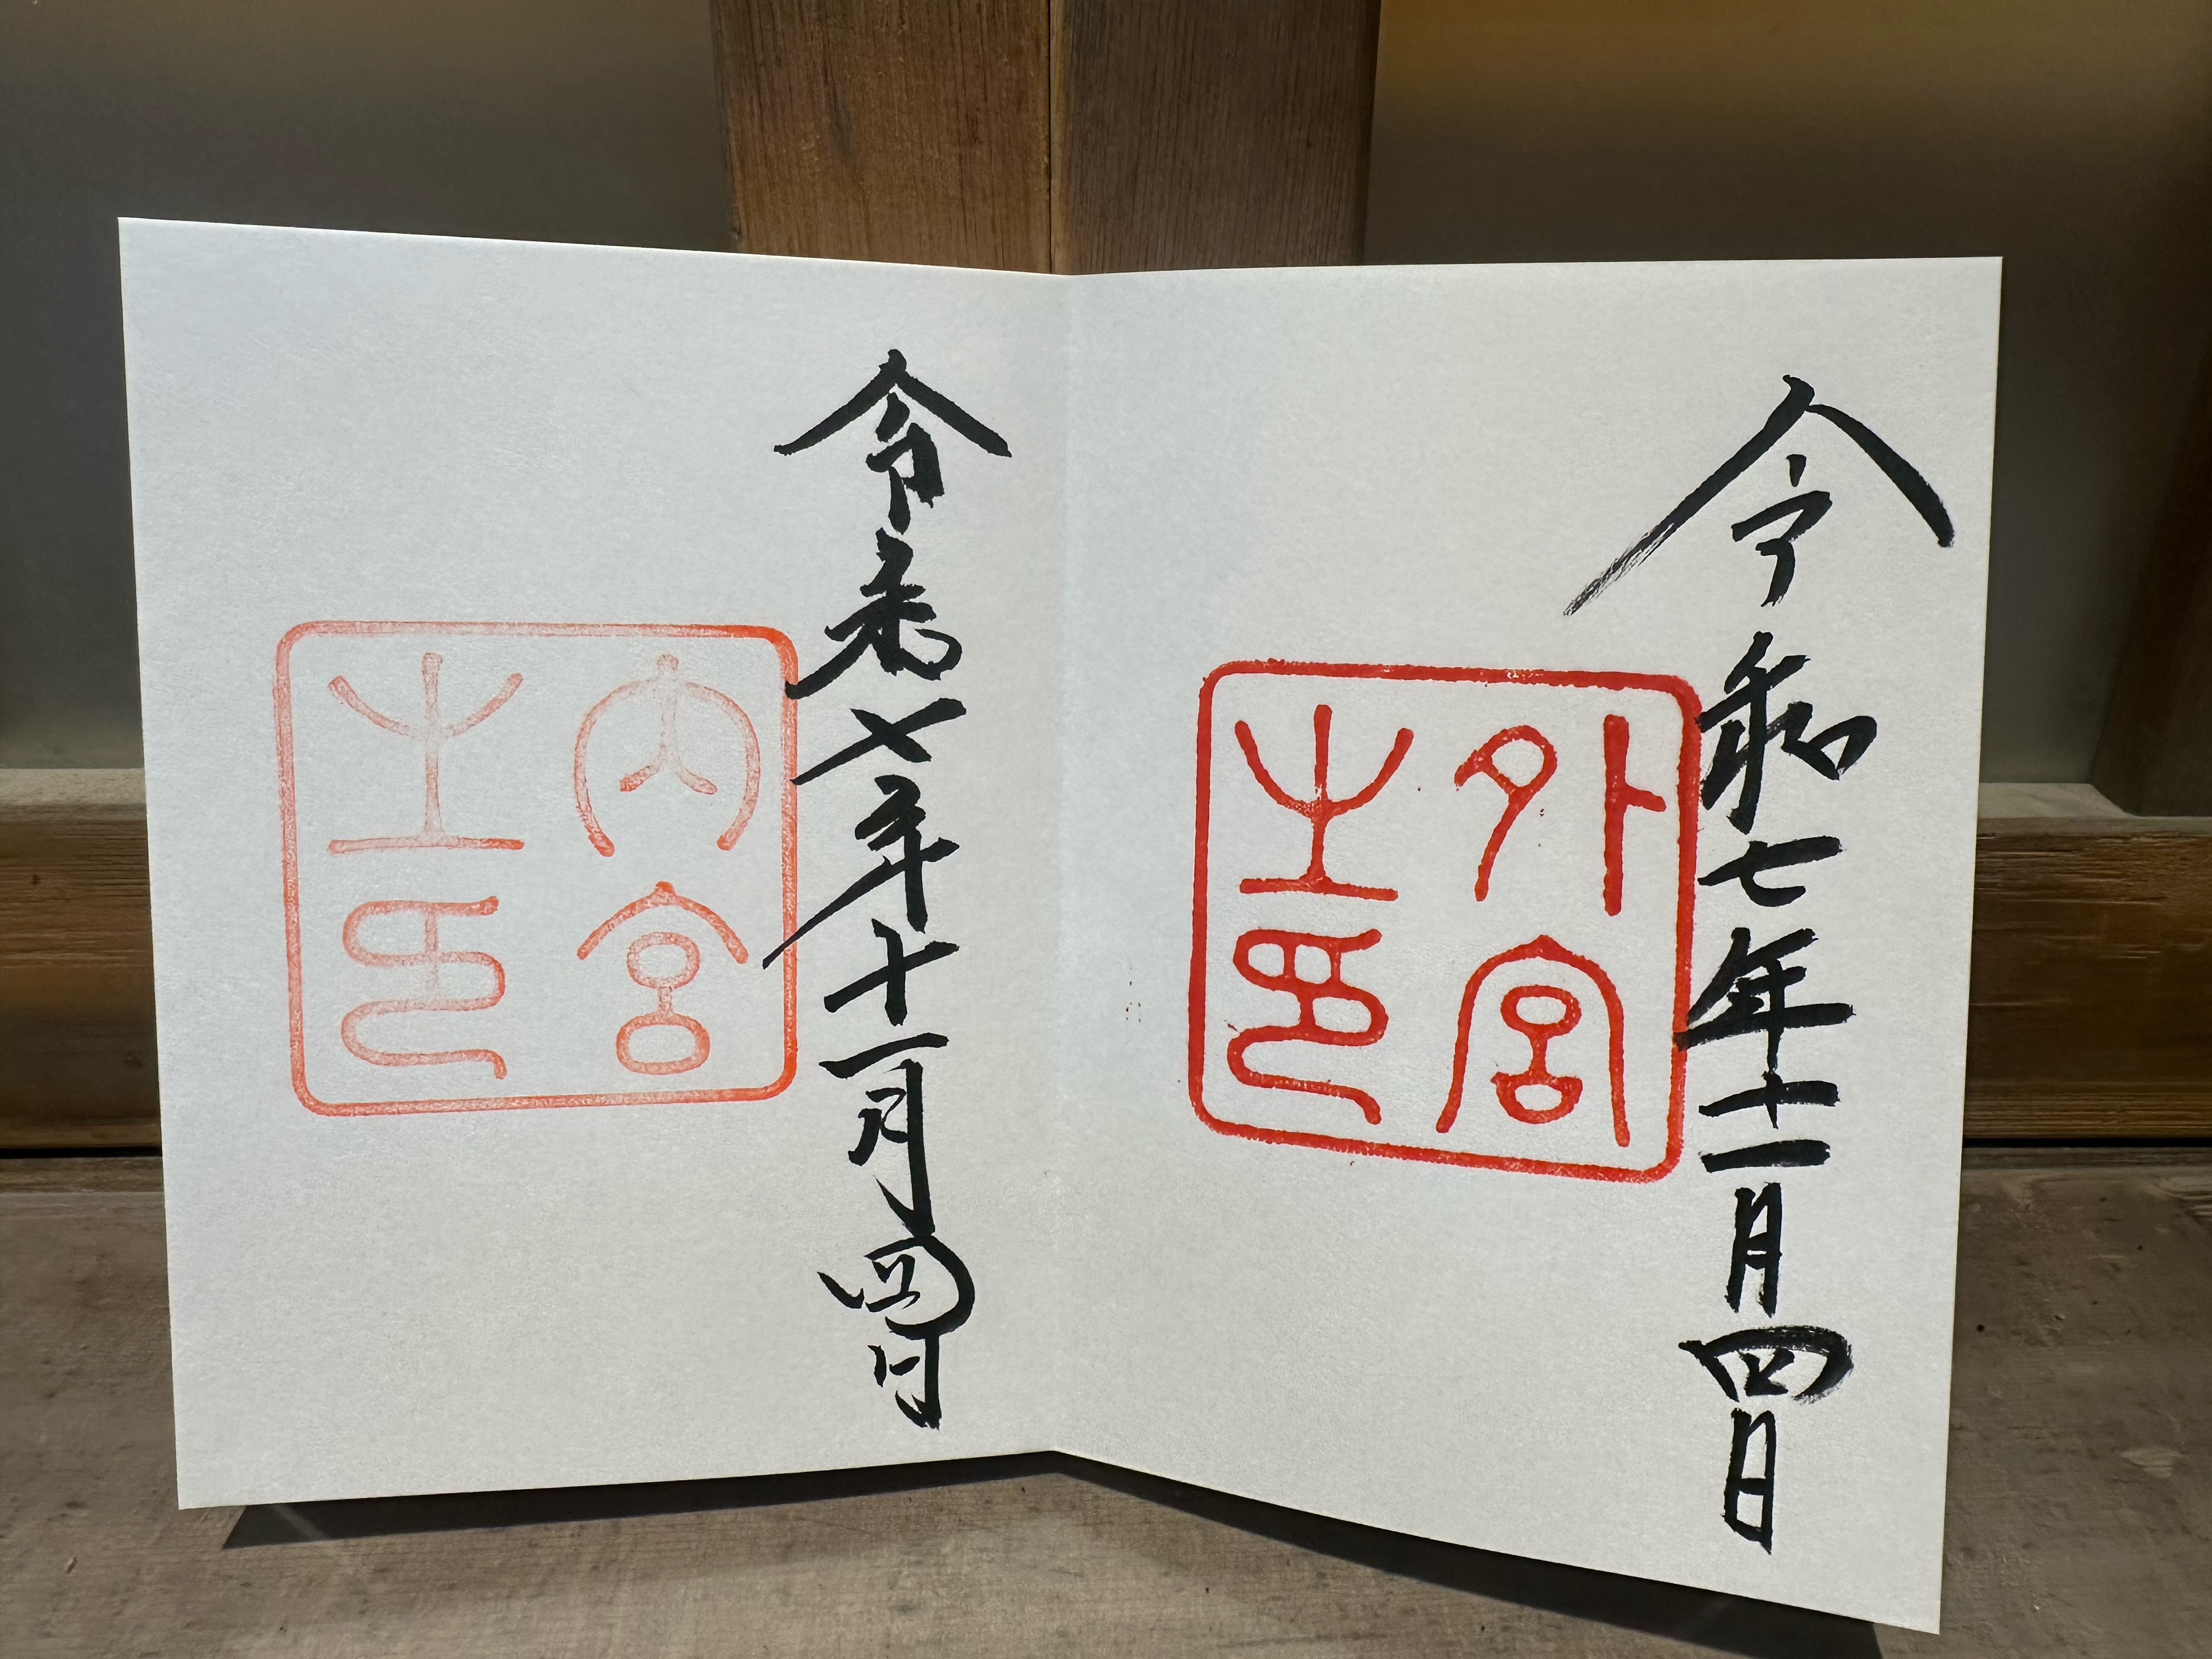 令和七年十一月四日
外宮
之印
令和七年十一月四日
内宮
之印